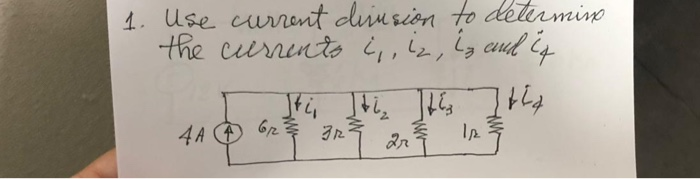 1. Use current division to determine
the currents i₁, i₂, i₃ and i₄
↓i₁ ↓i₂ ↓i₃ ↓i₄
4A 6Ω 3Ω 2Ω 1Ω